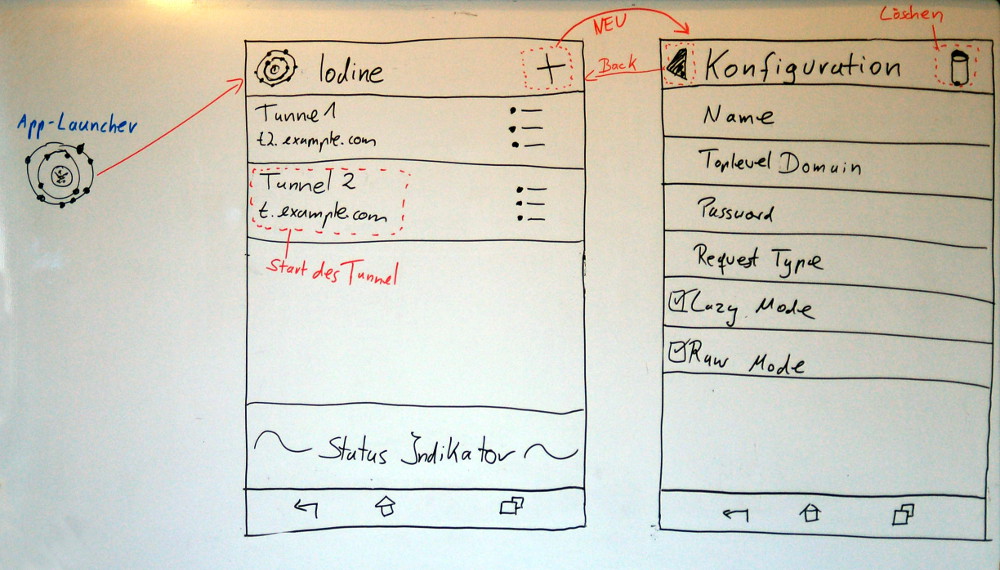 App-Launcher
Iodine
Tunnel 1
t2.example.com
Tunnel 2
t.example.com
Start des Tunnel
Status Indikator
NEU
Back
Löschen
Konfiguration
Name
Toplevel Domain
Password
Request Type
Lazy Mode
Raw Mode